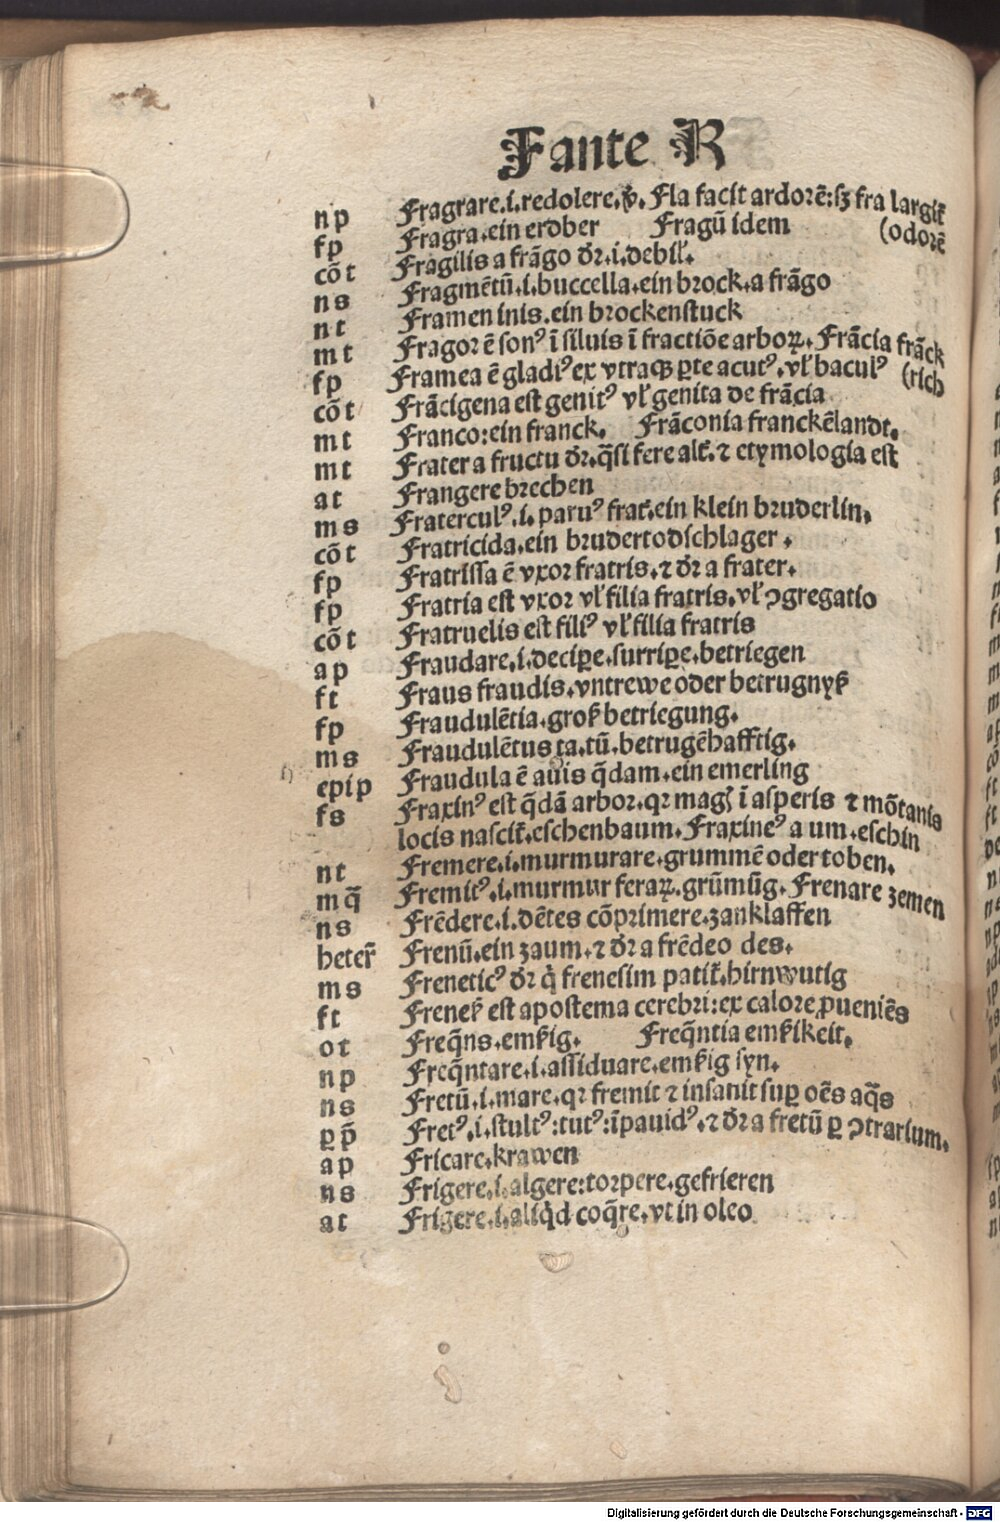 F ante R
np Fragrare.i.redolere.ṽ. Fla facit ardorē:sꝫ fra largit᷑
fp Fragra.ein erdber Fragū idem (odorē
cōt Fragilis a frāgo dr̄.i.debil᷑.
ns Fragmētū.i.buccella.ein brock.a frāgo
nt Framen inis.ein brockenstuck
mt Fragor ē sonꝰ ī siluis ī fractiōe arboꝝ. Frācia frāck
fp Framea ē gladiꝰ ex vtraqꝫ ꝑte acutꝰ.vl᷑ baculꝰ (rich
cōt Frācigena est genitꝰ vl᷑ genita de frācia
mt Franco:ein franck. Frāconia franckēlandt.
mt Frater a fructu dr̄.q̄si fere alt᷑.⁊ etymologia est
at Frangere brechen
ms Fraterculꝰ.i.paruꝰ frat᷑.ein klein bruderlin.
cōt Fratricida.ein brudertodschlager.
fp Fratrissa ē vxor fratris.⁊ dr̄ a frater.
fp Fratria est vxor vl᷑ filia fratris.vl᷑ ꝯgregatio
cōt Fratruelis est filiꝰ vl᷑ filia fratris
ap Fraudare.i.deciꝑe.surriꝑe.betriegen
ft Fraus fraudis.vntrewe oder betrugnyß
fp Fraudulētia.groß betriegung.
ms Fraudulētus ta.tū.betrugēhafftig.
epip Fraudula ē auis q̄dam.ein emerling
fs Fraxinꝰ est q̄dā arbor.qꝛ magꝭ ī asperis ⁊ mōtanis
locis nascit᷑.eschenbaum. Fraxineꝰ a um.eschin
nt Fremere.i.murmurare.grummē oder toben.
mq̄ Fremitꝰ.i.murmur feraꝝ.grūmūg. Frenare zemen
ns Frēdere.i.dētes cōprimere.zanklaffen
heter̄ Frenū.ein zaum.⁊ dr̄ a frēdeo des.
ms Freneticꝰ dr̄ q̇ frenesim patit᷑.hirnwutig
ft Freneß est apostema cerebri:ex calore ꝓueniēs
ot Freq̄ns.emßig. Freq̄ntia emßikeit.
np Freq̄ntare.i.assiduare.emßig syn.
ns Fretū.i.mare.qꝛ fremit ⁊ insanit suꝑ oēs aq̄s
ꝑp̄ Fretꝰ.i.stultꝰ:tutꝰ:īpauidꝰ.⁊ dr̄ a fretū ꝑ ꝯtrarium.
ap Fricare.krawen
ns Frigere.i.algere:torpere.gefrieren
at Frigere.i.aliq̇d coq̄re.vt in oleo
Digitalisierung gefördert durch die Deutsche Forschungsgemeinschaft - DFG